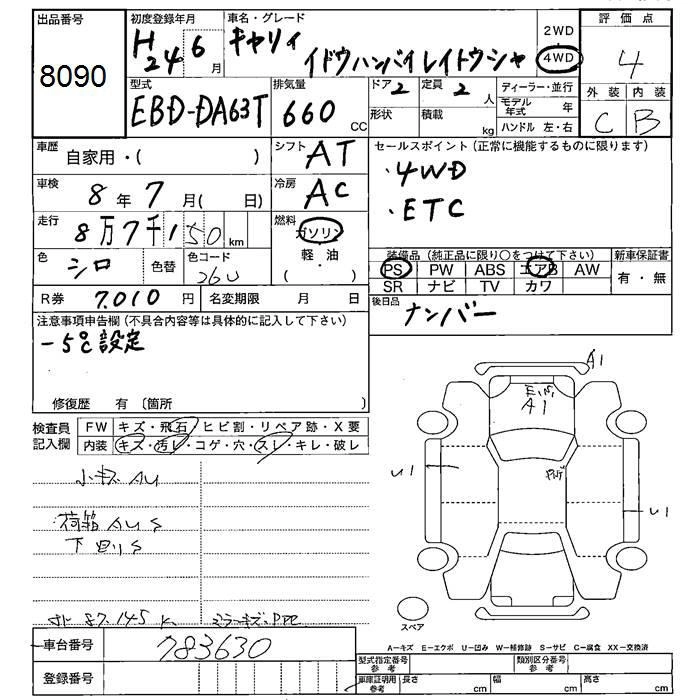 出品番号
8090
初度登録年月
H24 6月
車名・グレード
キャリィ
イドウハンバイレイトウシャ
2WD
4WD
評価点
4
外装 内装
C B
型式
EBD-DA63T
排気量
660 CC
ドア 2
定員 2 人
形状
積載 kg
ディーラー・並行
モデル年式 年
ハンドル 左・右
車歴
自家用・( )
シフト
AT
セールスポイント(正常に機能するものに限ります)
・4WD
・ETC
車検
8年7月( 日)
冷房
AC
走行
8万7千150km
燃料
ガソリン
軽・油
( )
色
シロ
色替
色コード
26U
装備品(純正品に限り○をつけて下さい)
PS PW ABS エアB AW
SR ナビ TV カワ
新車保証書
有・無
R券 7,010円
名変期限 月 日
後日品
ナンバー
注意事項申告欄(不具合内容等は具体的に記入して下さい)
-5℃設定
修復歴 有〔箇所 〕
検査員記入欄
FW キズ・飛石・ヒビ割・リペア跡・X要
内装 キズ・汚レ・コゲ・穴・スレ・キレ・破レ
小キズ AU
荷箱 AUS
下回りS
87,145K
A1
A1
U1
U1
スペア
A-キズ E-エクボ U-凹み W-補修跡 S-サビ C-腐食 XX-交換済
車台番号
783630
登録番号
型式指定番号 参考
類別区分番号 参考
車庫証明用 参考
長さ cm
幅 cm
高さ cm